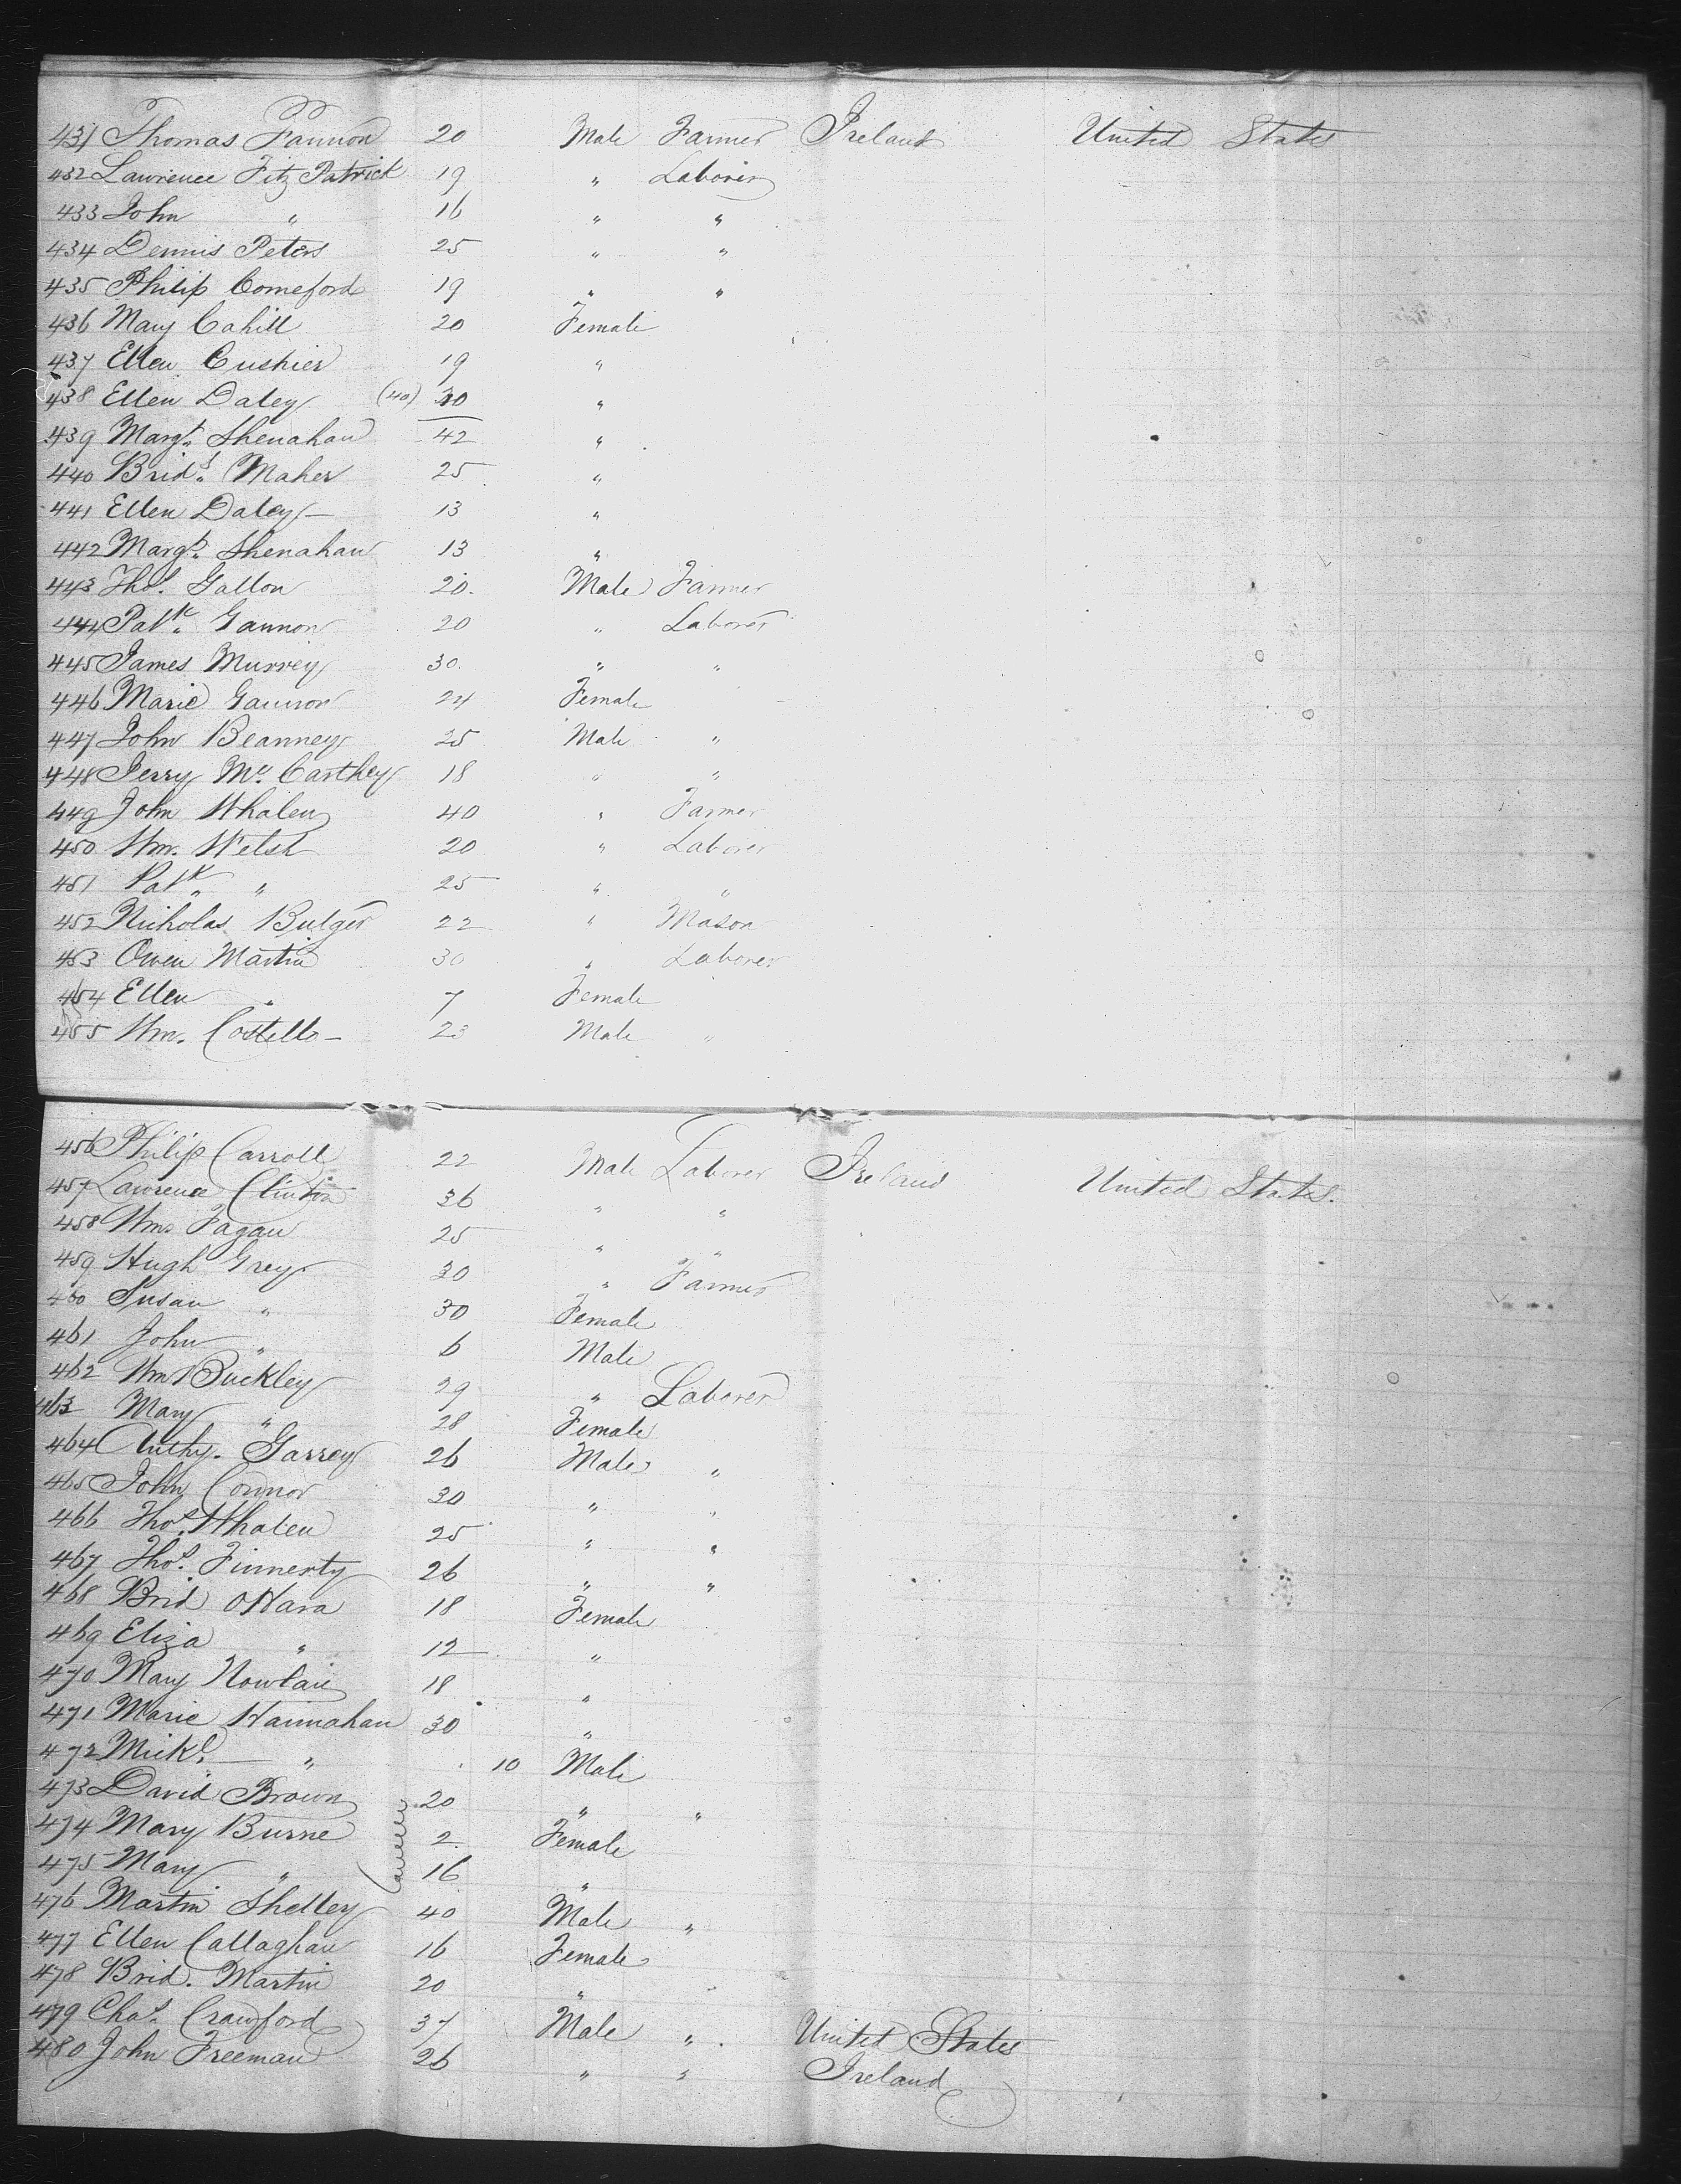 431 Thomas Fannon 20 Male Farmer Ireland United States
432 Lawrence Fitz Patrick 19 " Laborer
433 John " 16 " "
434 Dennis Peters 25 " "
435 Philip Comeford 19 " "
436 Mary Cahill 20 Female
437 Ellen Cushier 19 "
438 Ellen Daley (40) 30 "
439 Margt. Shenahan 42 "
440 Bridt. Maher 25 "
441 Ellen Daley 13 "
442 Margt. Shenahan 13 "
443 Thos. Gallon 20 Male Farmer
444 Patk. Gannon 20 " Laborer
445 James Murrey 30 " "
446 Marie Gannon 24 Female
447 John Beanney 25 Male "
448 Jerry Mc. Carthey 18 " "
449 John Whalen 40 " Farmer
450 Wm. Welsh 20 " Laborer
451 Patk. " 25 " "
452 Nicholas Bulger 22 " Mason
453 Owen Martin 30 " Laborer
454 Ellen " 7 Female
455 Wm. Costello 23 Male "
456 Philip Carroll 22 Male Laborer Ireland United States.
457 Lawrence Clinton 36 " "
458 Wm. Fagan 25 " "
459 Hugh Grey 30 " Farmer
460 Susan " 30 Female
461 John " 6 Male
462 Wm Buckley 29 " Laborer
463 Mary " 28 Female
464 Anthy. Garrey 26 Male "
465 John Connor 30 " "
466 Thos. Whalen 25 " "
467 Thos. Finnerty 26 " "
468 Brid OHara 18 Female
469 Eliza " 12 "
470 Mary Nowlan 18 "
471 Marie Hannahan 30 "
472 Mickl. " 10 Male
473 David Brown 20 " "
474 Mary Burne 2 Female
475 Mary " 16 "
476 Martin Shelley 40 Male "
477 Ellen Callaghan 16 Female
478 Brid. Martin 20 "
479 Chas. Crawford 37 Male " United States
480 John Freeman 26 " " Ireland